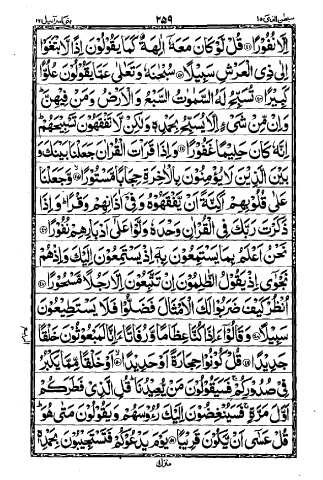 سبحن الذی ۱۵ ۲۵۹ بنی اسرآءیل ۱۷
اِلَّا نُفُوْرًا ۝ قُلْ لَّوْ كَانَ مَعَهٗۤ اٰلِهَةٌ كَمَا یَقُوْلُوْنَ اِذًا لَّابْتَغَوْا
اِلٰى ذِی الْعَرْشِ سَبِیْلًا ۝ سُبْحٰنَهٗ وَ تَعٰلٰى عَمَّا یَقُوْلُوْنَ عُلُوًّا
كَبِیْرًا ۝ تُسَبِّحُ لَهُ السَّمٰوٰتُ السَّبْعُ وَ الْاَرْضُ وَ مَنْ فِیْهِنَّ ؕ
وَ اِنْ مِّنْ شَیْءٍ اِلَّا یُسَبِّحُ بِحَمْدِهٖ وَ لٰكِنْ لَّا تَفْقَهُوْنَ تَسْبِیْحَهُمْ ؕ
اِنَّهٗ كَانَ حَلِیْمًا غَفُوْرًا ۝ وَ اِذَا قَرَاْتَ الْقُرْاٰنَ جَعَلْنَا بَیْنَكَ وَ
بَیْنَ الَّذِیْنَ لَا یُؤْمِنُوْنَ بِالْاٰخِرَةِ حِجَابًا مَّسْتُوْرًا ۝ وَّ جَعَلْنَا
عَلٰى قُلُوْبِهِمْ اَكِنَّةً اَنْ یَّفْقَهُوْهُ وَ فِیْۤ اٰذَانِهِمْ وَقْرًا ؕ وَ اِذَا
ذَكَرْتَ رَبَّكَ فِی الْقُرْاٰنِ وَحْدَهٗ وَلَّوْا عَلٰۤى اَدْبَارِهِمْ نُفُوْرًا ۝
نَحْنُ اَعْلَمُ بِمَا یَسْتَمِعُوْنَ بِهٖۤ اِذْ یَسْتَمِعُوْنَ اِلَیْكَ وَ اِذْ هُمْ
نَجْوٰۤى اِذْ یَقُوْلُ الظّٰلِمُوْنَ اِنْ تَتَّبِعُوْنَ اِلَّا رَجُلًا مَّسْحُوْرًا ۝
اُنْظُرْ كَیْفَ ضَرَبُوْا لَكَ الْاَمْثَالَ فَضَلُّوْا فَلَا یَسْتَطِیْعُوْنَ
سَبِیْلًا ۝ وَ قَالُوْۤا ءَاِذَا كُنَّا عِظَامًا وَّ رُفَاتًا ءَاِنَّا لَمَبْعُوْثُوْنَ خَلْقًا
جَدِیْدًا ۝ قُلْ كُوْنُوْا حِجَارَةً اَوْ حَدِیْدًا ۝ اَوْ خَلْقًا مِّمَّا یَكْبُرُ
فِیْ صُدُوْرِكُمْ ۚ فَسَیَقُوْلُوْنَ مَنْ یُّعِیْدُنَا ؕ قُلِ الَّذِیْ فَطَرَكُمْ
اَوَّلَ مَرَّةٍ ۚ فَسَیُنْغِضُوْنَ اِلَیْكَ رُءُوْسَهُمْ وَ یَقُوْلُوْنَ مَتٰى هُوَ ؕ
قُلْ عَسٰۤى اَنْ یَّكُوْنَ قَرِیْبًا ۝ یَوْمَ یَدْعُوْكُمْ فَتَسْتَجِیْبُوْنَ بِحَمْدِهٖ
منزل